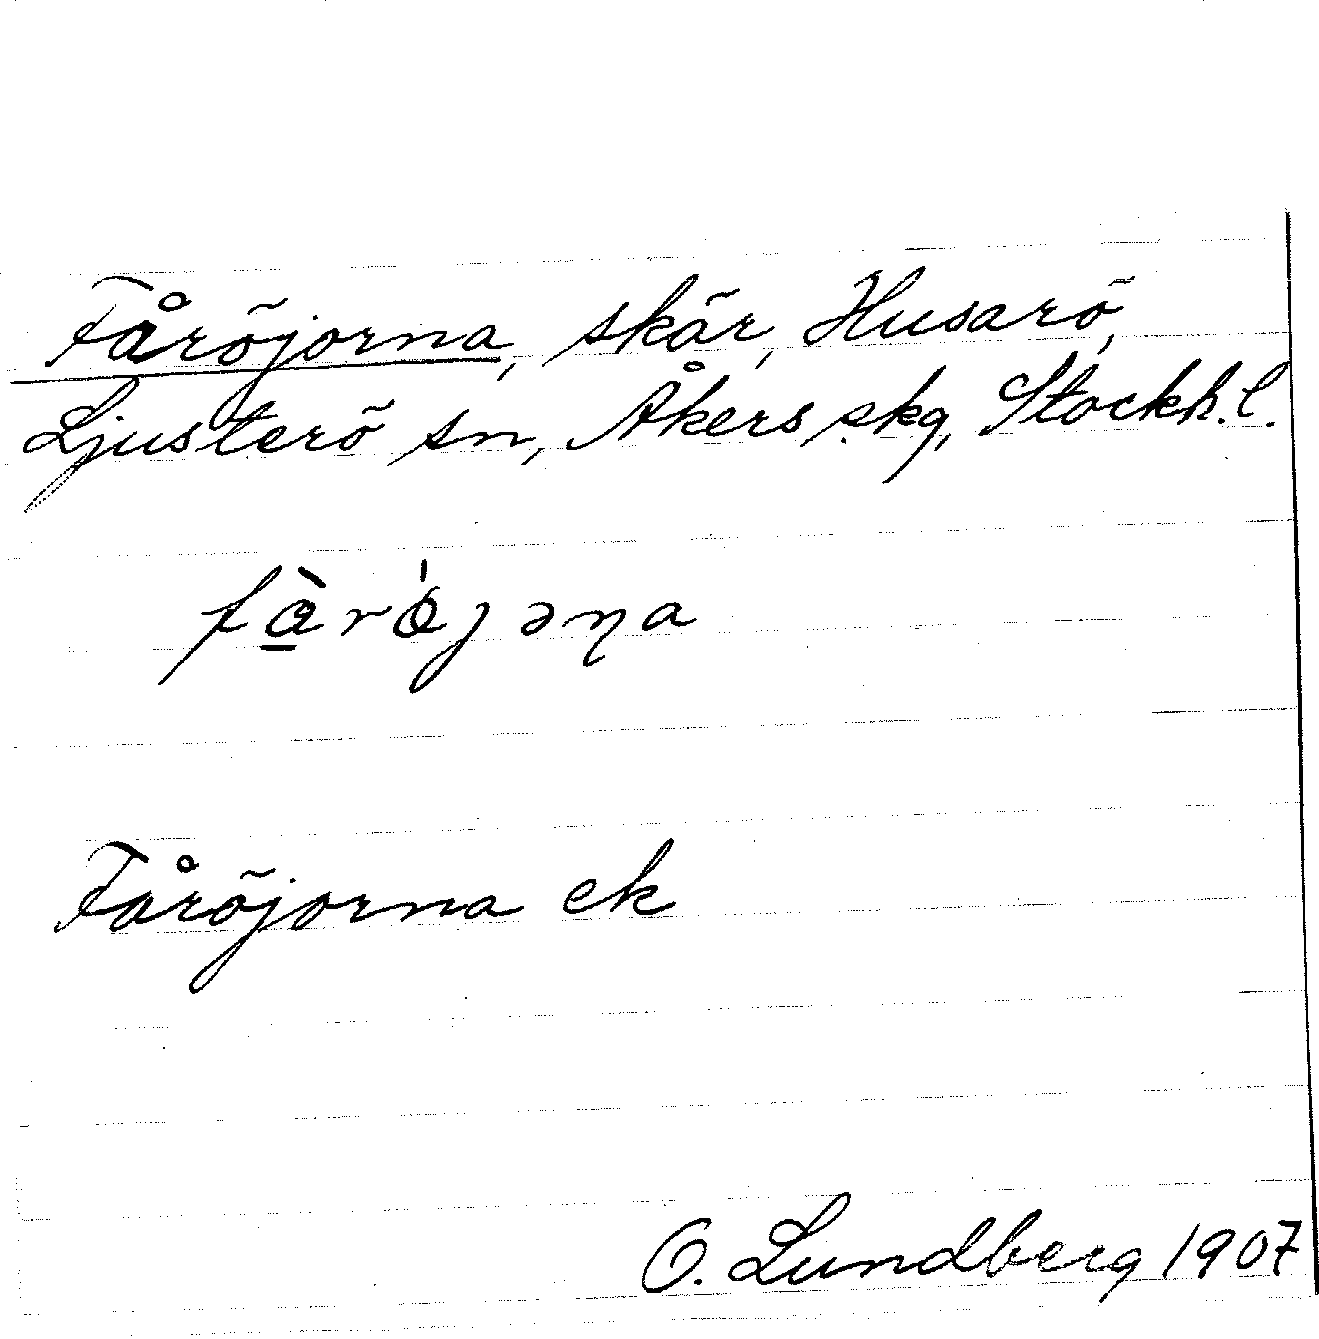 Fåröjorna, skär, Husarö,
Ljusterö sn, Åkers skg, Stockh.l.
Fåröjorna ek
O. Lundberg 1907